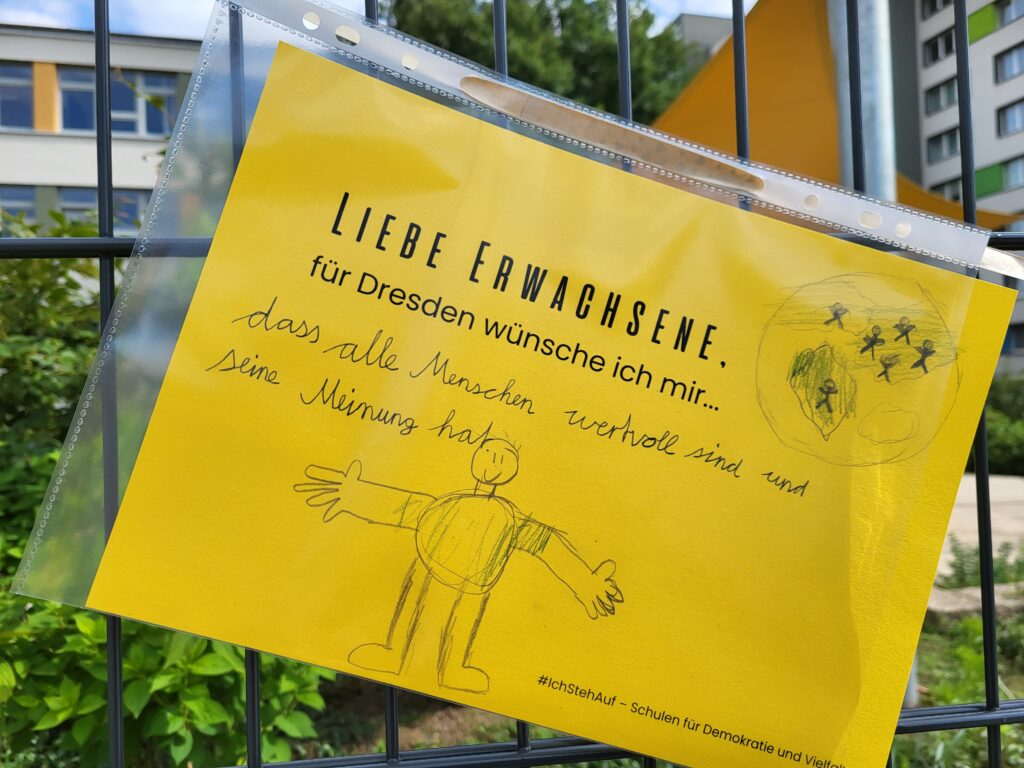 LIEBE ERWACHSENE,
für Dresden wünsche ich mir...
dass alle Menschen wertvoll sind und
seine Meinung hat
#IchStehAuf – Schulen für Demokratie und Vielfalt